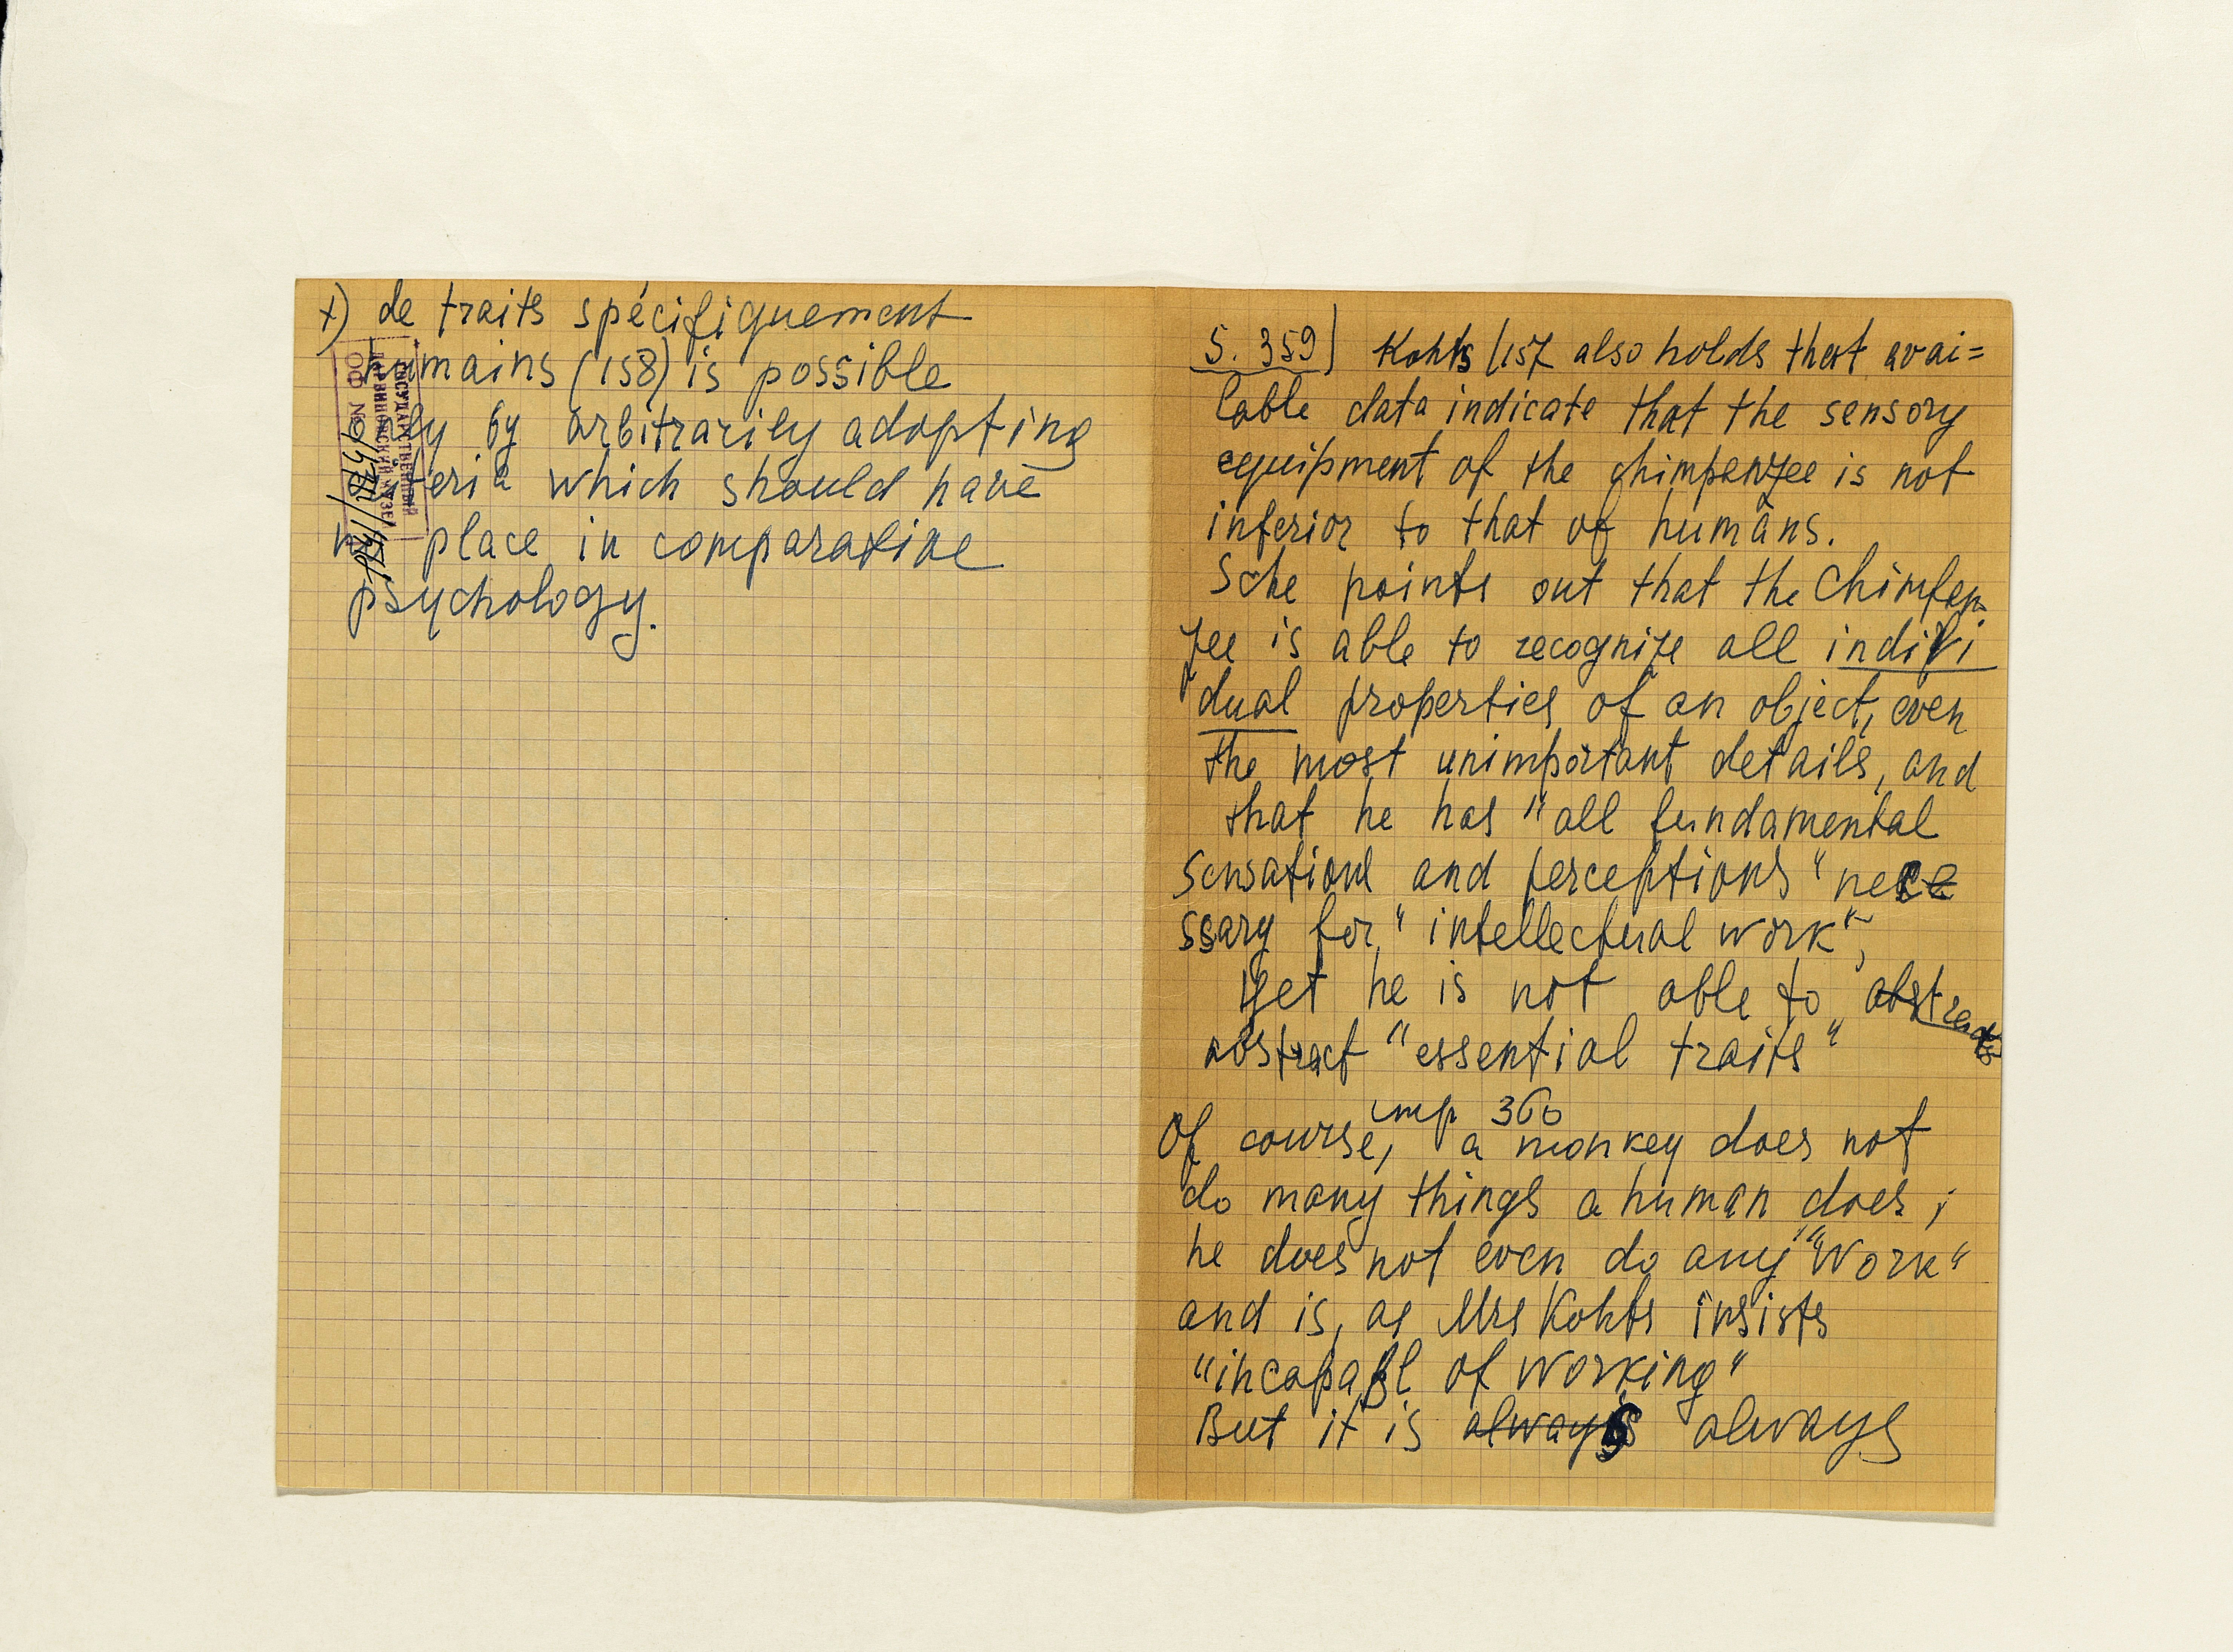 +) de traits spécifiquement
humains (158) is possible
only by arbitrarily adopting
criteria which should have
no place in comparative
psychology.
ГОСУДАРСТВЕННЫЙ
ДАРВИНОВСКИЙ МУЗЕЙ
ОФ №
S. 359) Kohts (157 also holds that avai=
lable data indicate that the sensory
equipment of the chimpanzee is not
inferior to that of humans.
Sche points out that the Chimpan
zee is able to recognize all indivi
dual properties of an object, even
the most unimportant details, and
that he has "all fundamental
sensations and perceptions" nece
ssary for "intellectual work",
yet he is not able to abstract
abstract "essential traits"
стр 360
Of course, a monkey does not
do many things a human does;
he does not even do any "Work"
and is, as Mrs Kohts insists
"incapabl of working"
But it is always always